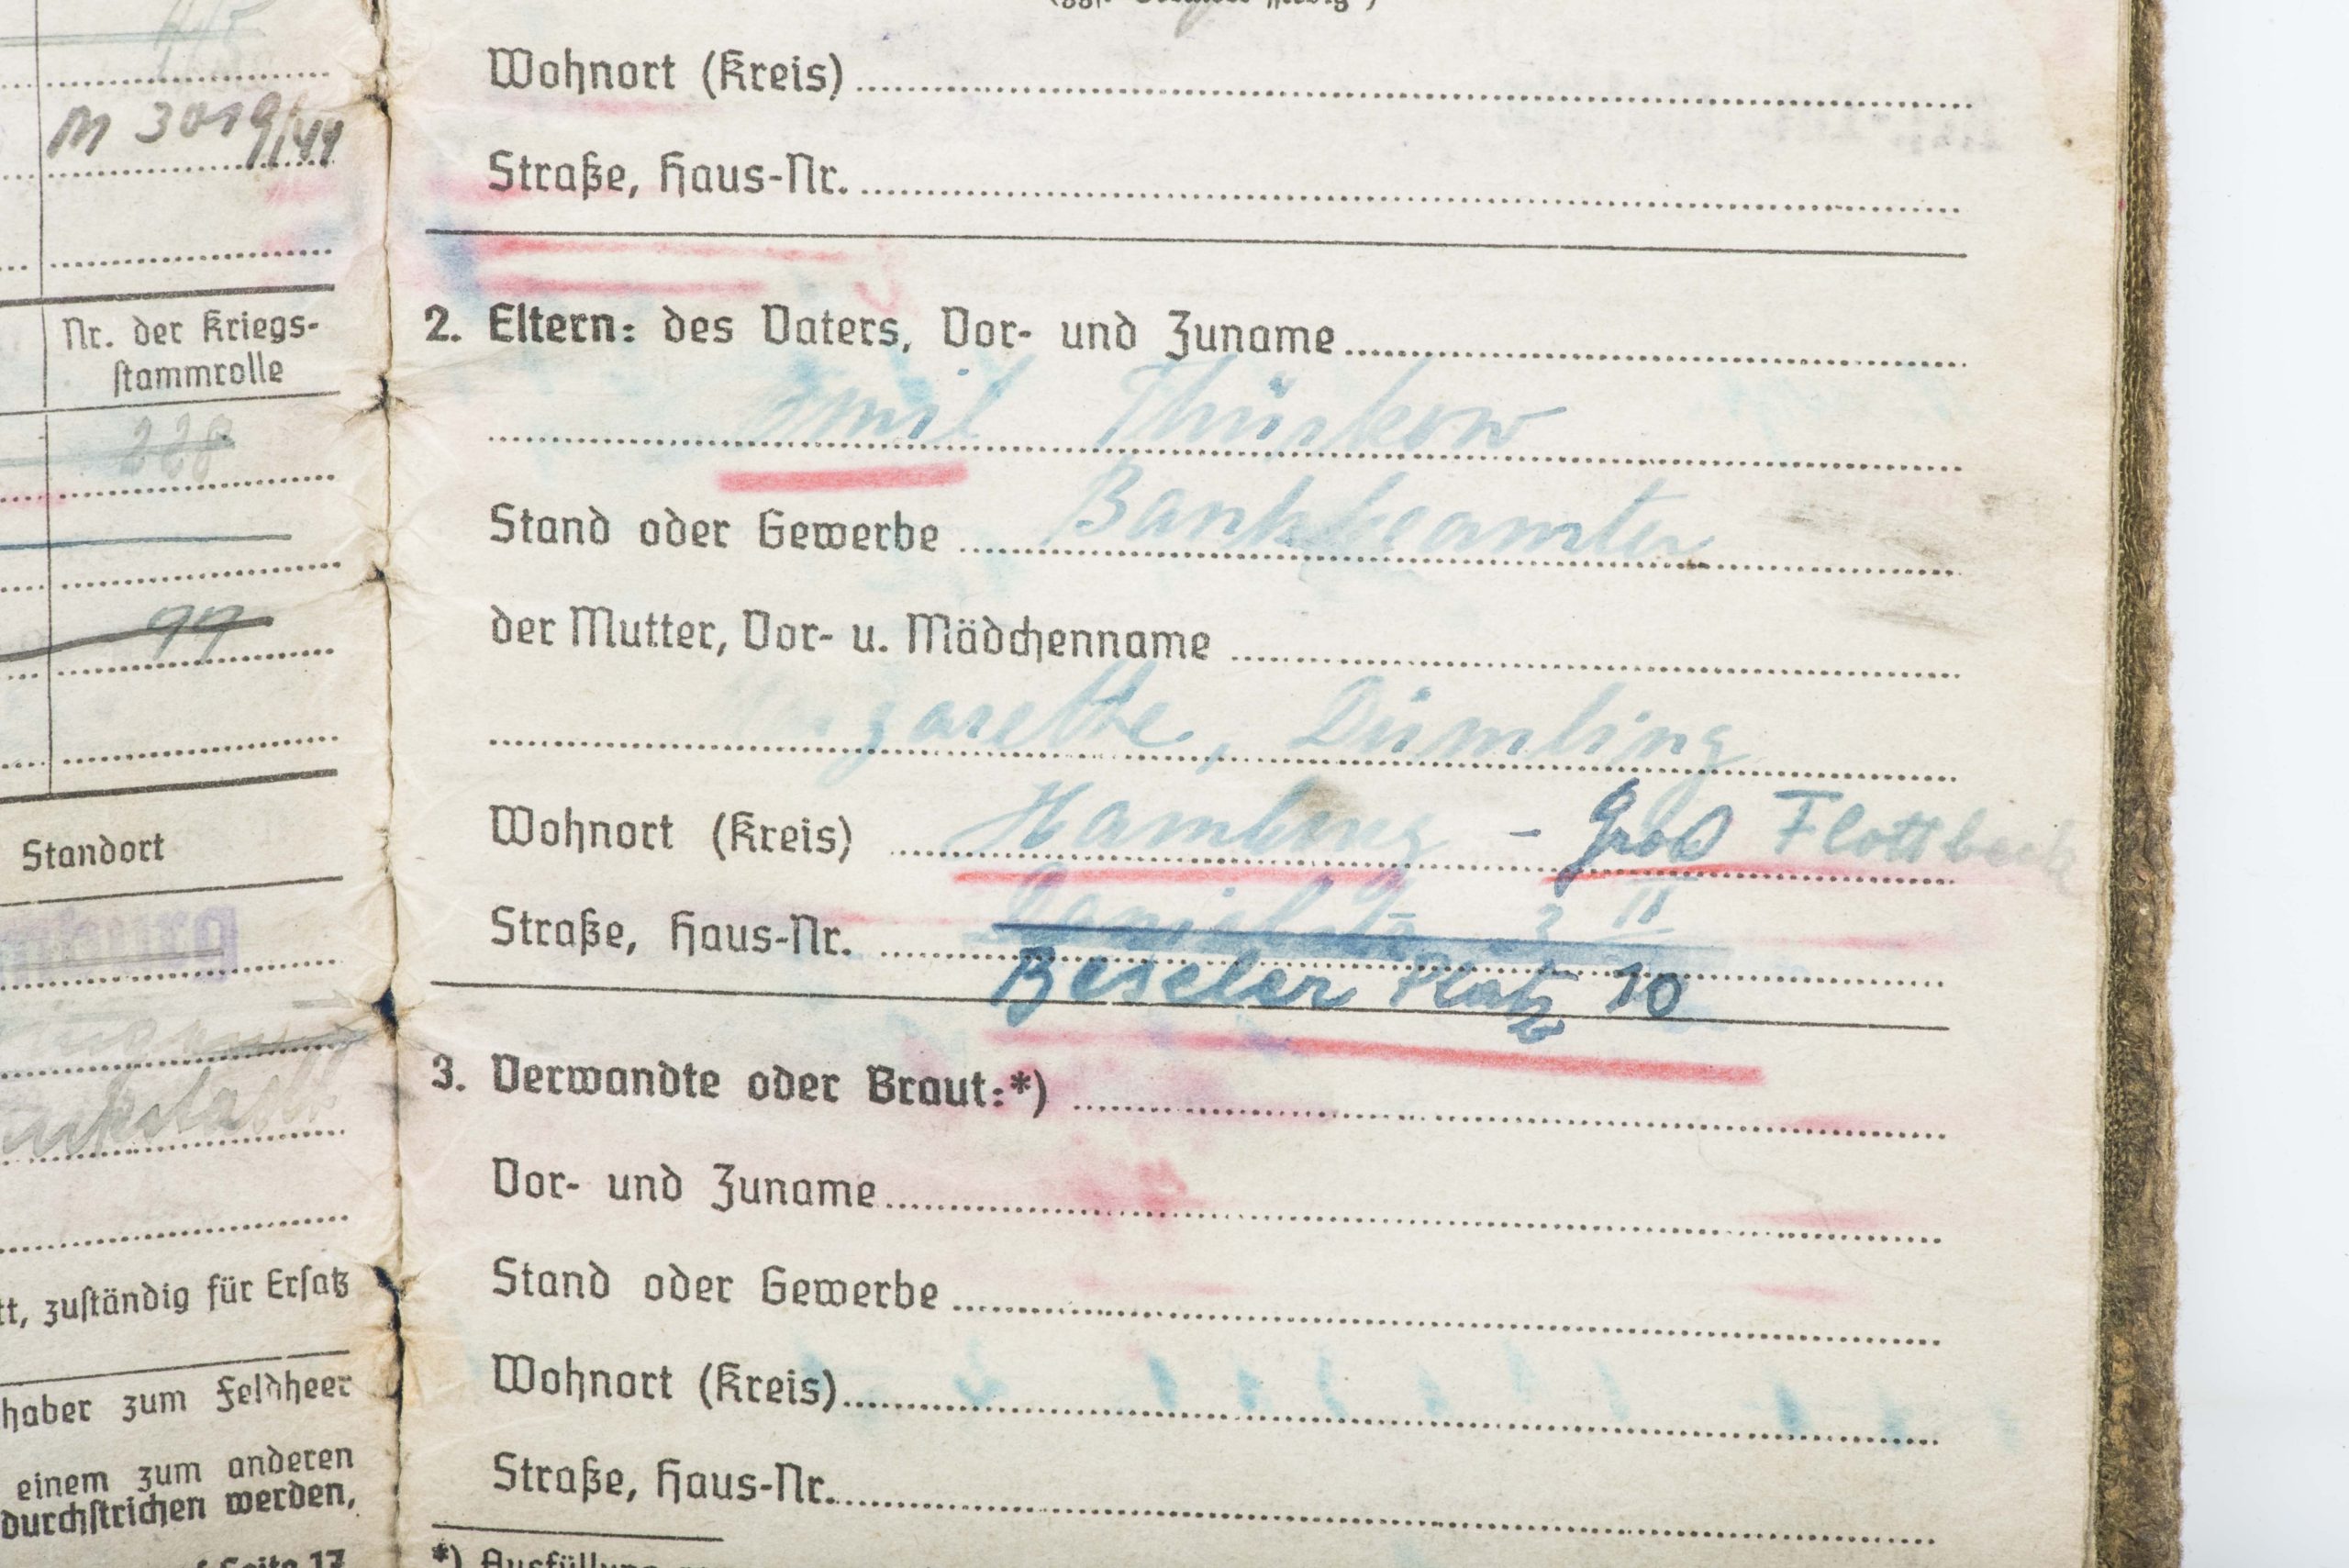 M 3019/44
Nr. der Kriegs-
stammrolle
228
99
Standort
tt, zuständig für Ersatz
haber zum Feldheer
einem zum anderen
durchstrichen werden,
Seite 17
Wohnort (Kreis)
Straße, Haus-Nr.
2. Eltern: des Vaters, Vor- und Zuname
Emil Thürkow
Stand oder Gewerbe Bankbeamter
der Mutter, Vor- u. Mädchenname
Dümling
Wohnort (Kreis) Hamburg - Groß Flottbeck
Straße, Haus-Nr. 3 II
Beseler Platz 10
3. Verwandte oder Braut:*)
Vor- und Zuname
Stand oder Gewerbe
Wohnort (Kreis)
Straße, Haus-Nr.
*) Ausfüllung